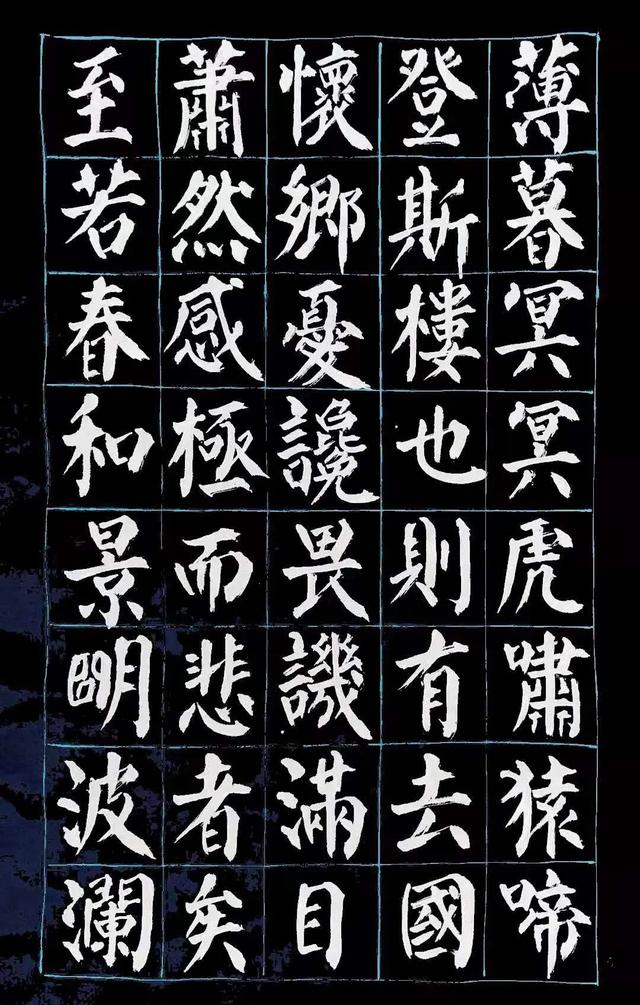 薄暮冥冥虎嘯猿啼
登斯樓也則有去國
懷鄉憂讒畏譏滿目
蕭然感極而悲者矣
至若春和景明波瀾